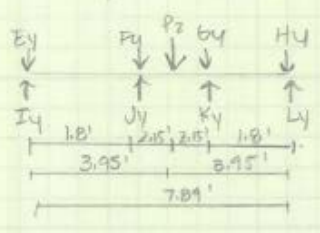 Ey Fy P2 Gy Hy
Iy Jy Ky Ly
1.8' 2.15' 2.15' 1.8'
3.95' 3.95'
7.89'